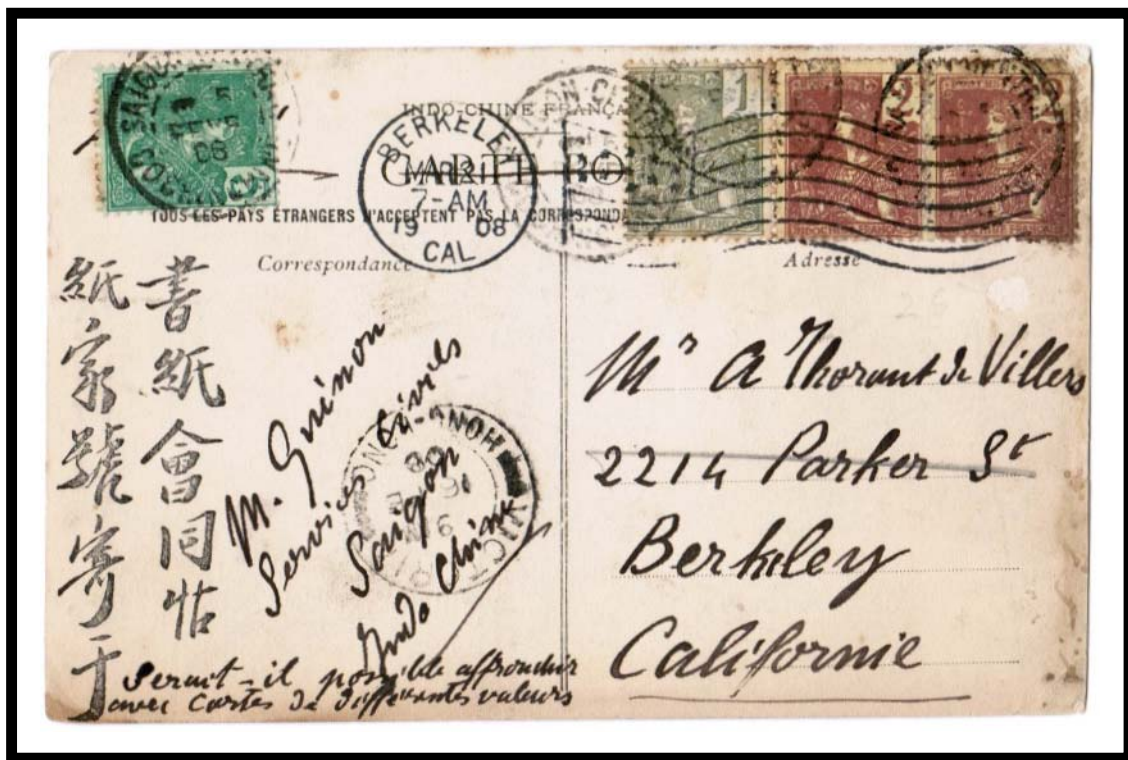 INDO-CHINE FRANÇA
BERKELEY
MAR 3
7-AM
19 08
CAL
TOUS LES PAYS ÉTRANGERS N'ACCEPTENT PAS LA CORRESPONDA
Correspondance
Adresse
書紙會同帖
紙家號寄于
M. Guénon
Services Civils
Saigon
Indo Chine
Serait-il possible affranchir
avec Cartes de differentes valeurs
Mr A Thorant de Villers
2214 Parker St
Berkeley
Californie